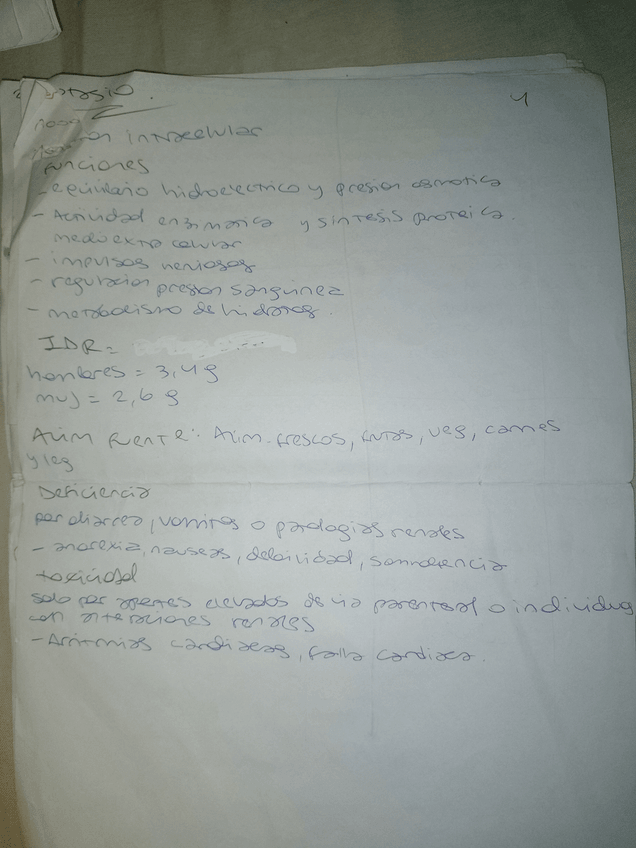 Potasio.
4
intracelular
Funciones
- equilibrio hidroelectrico y presion osmotica
- Actividad enzimatica y sintesis proteica.
medio extra celular
- impulsos nerviosos
- regulacion presion sanguinea
- metabolismo de hidratos.
IDR=
hombres = 3,4 g
muj = 2,6 g
Alim Fuente: Alim. frescos, frutas, veg, carnes
y leg
Deficiencia
por diarrea, vomitos o patologias renales
- anorexia, nauseas, debilidad, somnolencia
toxicidad
solo por aportes elevados de via parenteral o individuos
con alteraciones renales
- Arritmias cardiacas, falla cardiaca.